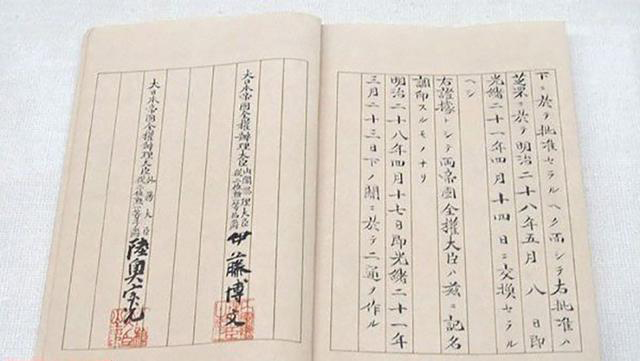 下ニ於テ批准セラルヘク而シテ右批准ハ
芝罘ニ於テ明治二十八年五月八日即
光緒二十一年四月十四日ニ交換セラル
ヘシ
右證據トシテ兩帝國全權大臣ハ茲ニ記名
調印スルモノナリ
明治二十八年四月十七日即光緒二十一年
三月二十三日下ノ關ニ於テ二通ヲ作ル
大日本帝國全權辦理大臣
伊藤博文
大日本帝國全權辦理大臣
陸奧宗光